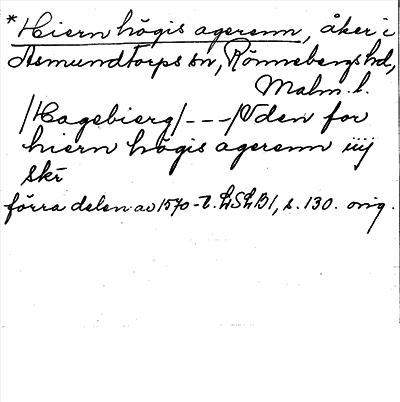 * Hiern högis agerenn, åker i
Asmundtorps sn, Rönnebergs hd,
Malm. l.
/Hagebierg/ - - - /Vden for
hiern högis agerenn iiij
skr
förra delen av 1570-t. LSLB1, s. 130. orig.